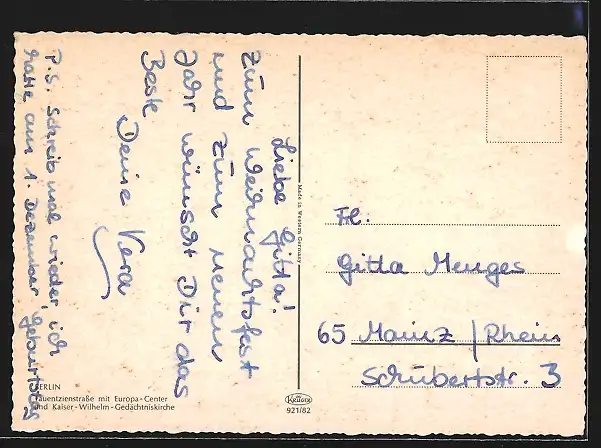 Liebe Gitta!
Zum Weihnachtsfest
und zum neuen
Jahr wünscht Dir das
Beste
Deine Vera
P.S. Schreib mal wieder, ich
hatte am 1. Dezember Geburtstag
Made in Western Germany
Frl.
Gitta Menges
65 Mainz / Rhein
Schubertstr. 3
BERLIN
Tauentzienstraße mit Europa-Center
und Kaiser-Wilhelm-Gedächtniskirche
Krüger
921/82